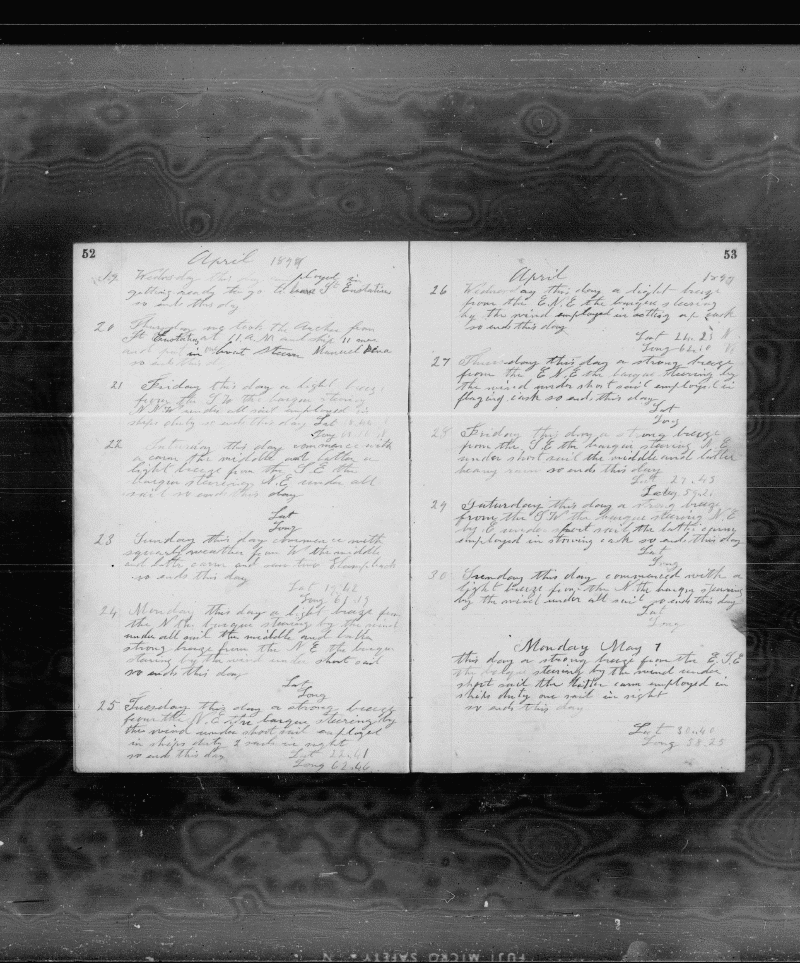 52
April 1899
19 Wednesday this day employed in
getting ready to go to leave St Eustatius
so ends this day
20 Thursday we took the Anchor from
St Eustatius at 11 A.M and ship 11 men
and
so ends this day
21 Friday this day a light breeze
from the S.W the barque steering
N.N.W under all sail employed in
ships duty so ends this day Lat
Long
22 Saturday this day commence with
a carm the middle and latter a
light breeze from the S.E the
barque steering N.E under all
sail so ends this day
Lat
Long
23 Sunday this day commence with
squarly weather from W the middle
and latter carm and saw two Humpback
so ends this day
Lat
Long
24 Monday this day a light breeze from
the N the barque steering by the wind
under all sail the middle and latter
strong breeze from the N.E the barque
stering by the wind under short sail
so ends this day
Lat
Long
25 Tuesday this day a strong breeze
from the N.E the barque steering by
the wind under short sail employed
in ships duty 2 sails in night
so ends this day Lat
Long 62.46
53
April 1899
26 Wednesday this day a light breeze
from the E.N.E the barque steering
by the wind employed in setting up cask
so ends this day
Lat
Long
27 Thursday this day a strong breeze
from the E.N.E the barque steering by
the wind under short sail employed in
flaging cask so ends this day
Lat
Long
28 Friday this day a strong breeze
from the S.E the barque steering N.E
under short sail the middle and latter
heavy rain so ends this day
Lat 27.43
Long
29 Saturday this day a strong breeze
from the S.W the barque steering N.E
by E under short sail the latter
employed in stowing cask so ends this day
Lat
Long
30 Sunday this day commenced with a
light breeze from the N the barque steering
by the wind under all sail so ends this day
Lat
Long
Monday May 1
this day a strong breeze from the E.S.E
the barque steering by the wind under
short sail the latter carm employed in
ships duty one sail in sight
so ends this day
Lat 30.40
Long 58.25
FUJI MICRO SAFETY